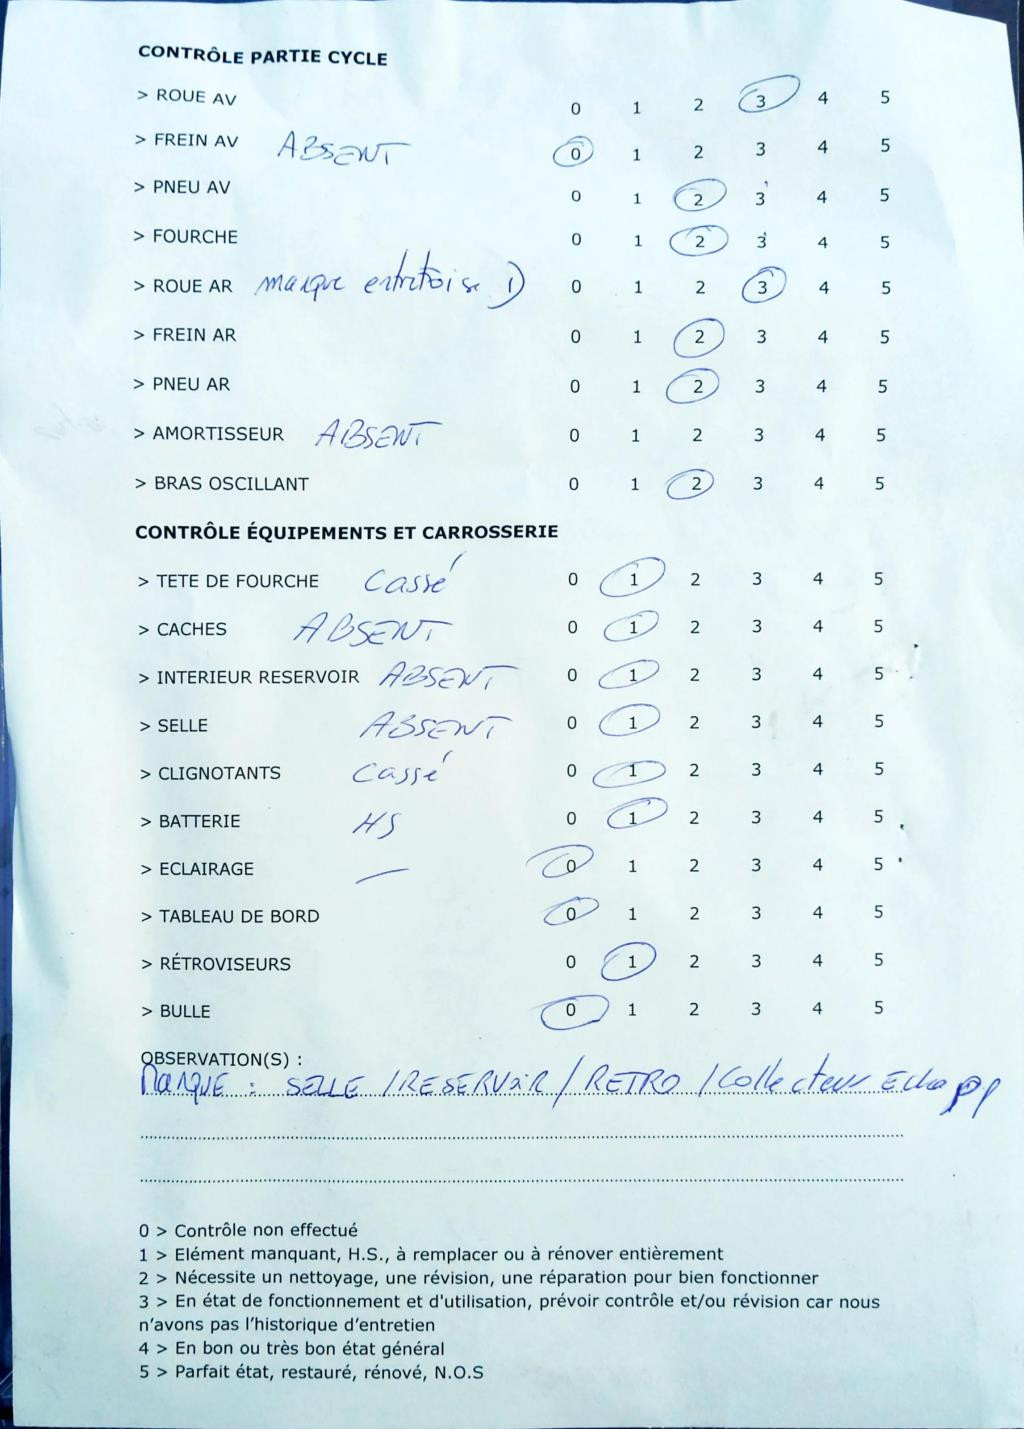 CONTRÔLE PARTIE CYCLE
> ROUE AV 0 1 2 3 4 5
> FREIN AV ABSENT 0 1 2 3 4 5
> PNEU AV 0 1 2 3 4 5
> FOURCHE 0 1 2 3 4 5
> ROUE AR manque entretoise D 0 1 2 3 4 5
> FREIN AR 0 1 2 3 4 5
> PNEU AR 0 1 2 3 4 5
> AMORTISSEUR ABSENT 0 1 2 3 4 5
> BRAS OSCILLANT 0 1 2 3 4 5
CONTRÔLE ÉQUIPEMENTS ET CARROSSERIE
> TETE DE FOURCHE Cassé 0 1 2 3 4 5
> CACHES ABSENT 0 1 2 3 4 5
> INTERIEUR RESERVOIR ABSENT 0 1 2 3 4 5
> SELLE ABSENT 0 1 2 3 4 5
> CLIGNOTANTS Cassé 0 1 2 3 4 5
> BATTERIE HS 0 1 2 3 4 5
> ECLAIRAGE — 0 1 2 3 4 5
> TABLEAU DE BORD 0 1 2 3 4 5
> RÉTROVISEURS 0 1 2 3 4 5
> BULLE 0 1 2 3 4 5
OBSERVATION(S) :
MANQUE : SELLE / RESERVOIR / RETRO / Collecteur Echapp
0 > Contrôle non effectué
1 > Elément manquant, H.S., à remplacer ou à rénover entièrement
2 > Nécessite un nettoyage, une révision, une réparation pour bien fonctionner
3 > En état de fonctionnement et d'utilisation, prévoir contrôle et/ou révision car nous
n'avons pas l'historique d'entretien
4 > En bon ou très bon état général
5 > Parfait état, restauré, rénové, N.O.S